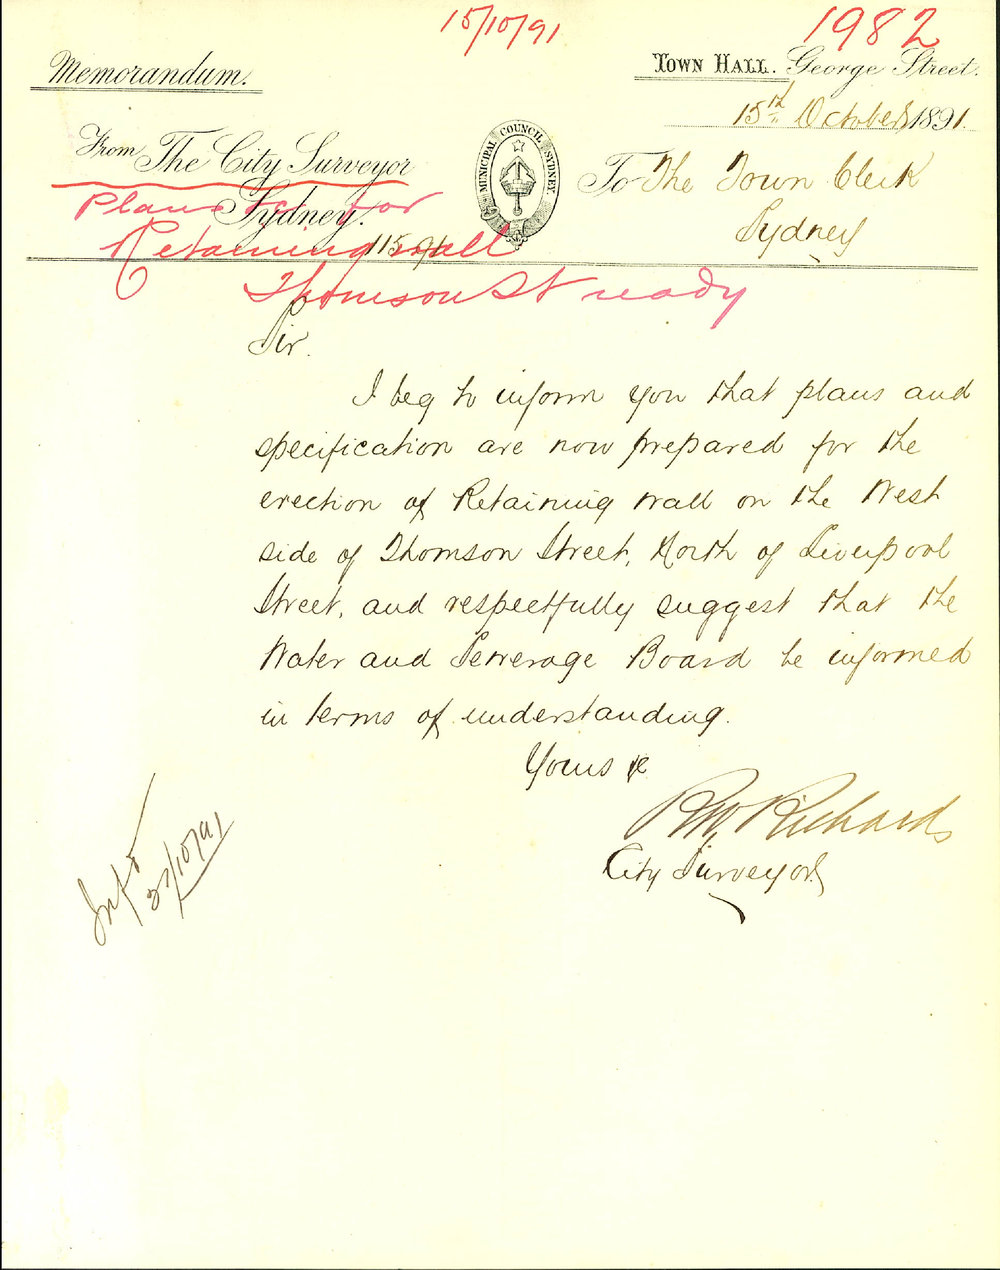 15/10/91
1982
Memorandum.
Town Hall. George Street.
15th October 1891.
From The City Surveyor
Sydney.
MUNICIPAL COUNCIL SYDNEY.
To The Town Clerk
Sydney
Plans for
Retaining wall
Thomson St ready
Sir.
I beg to inform you that plans and
specification are now prepared for the
erection of Retaining Wall on the West
side of Thomson Street, North of Liverpool
Street, and respectfully suggest that the
Water and Sewerage Board be informed
in terms of understanding.
Yours &c
R W Richards
City Surveyor